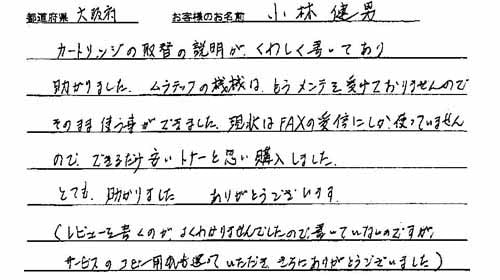 都道府県 大阪府 お客様のお名前 小林 健男
カートリッジの取替の説明が、くわしく書いてあり
助かりました。ムラテックの機械は、もうメンテを受けておりませんので
そのまま使う事ができました。現状はFAXの受信にしか使っていません
ので、できるだけ安いトナーと思い購入しました。
とても、助かりました ありがとうございます。
(レビューを書くのが、よくわかりませんでしたので、書いていないのですが、
サービスのコピー用紙も送っていただき、さらにありがとうございました)